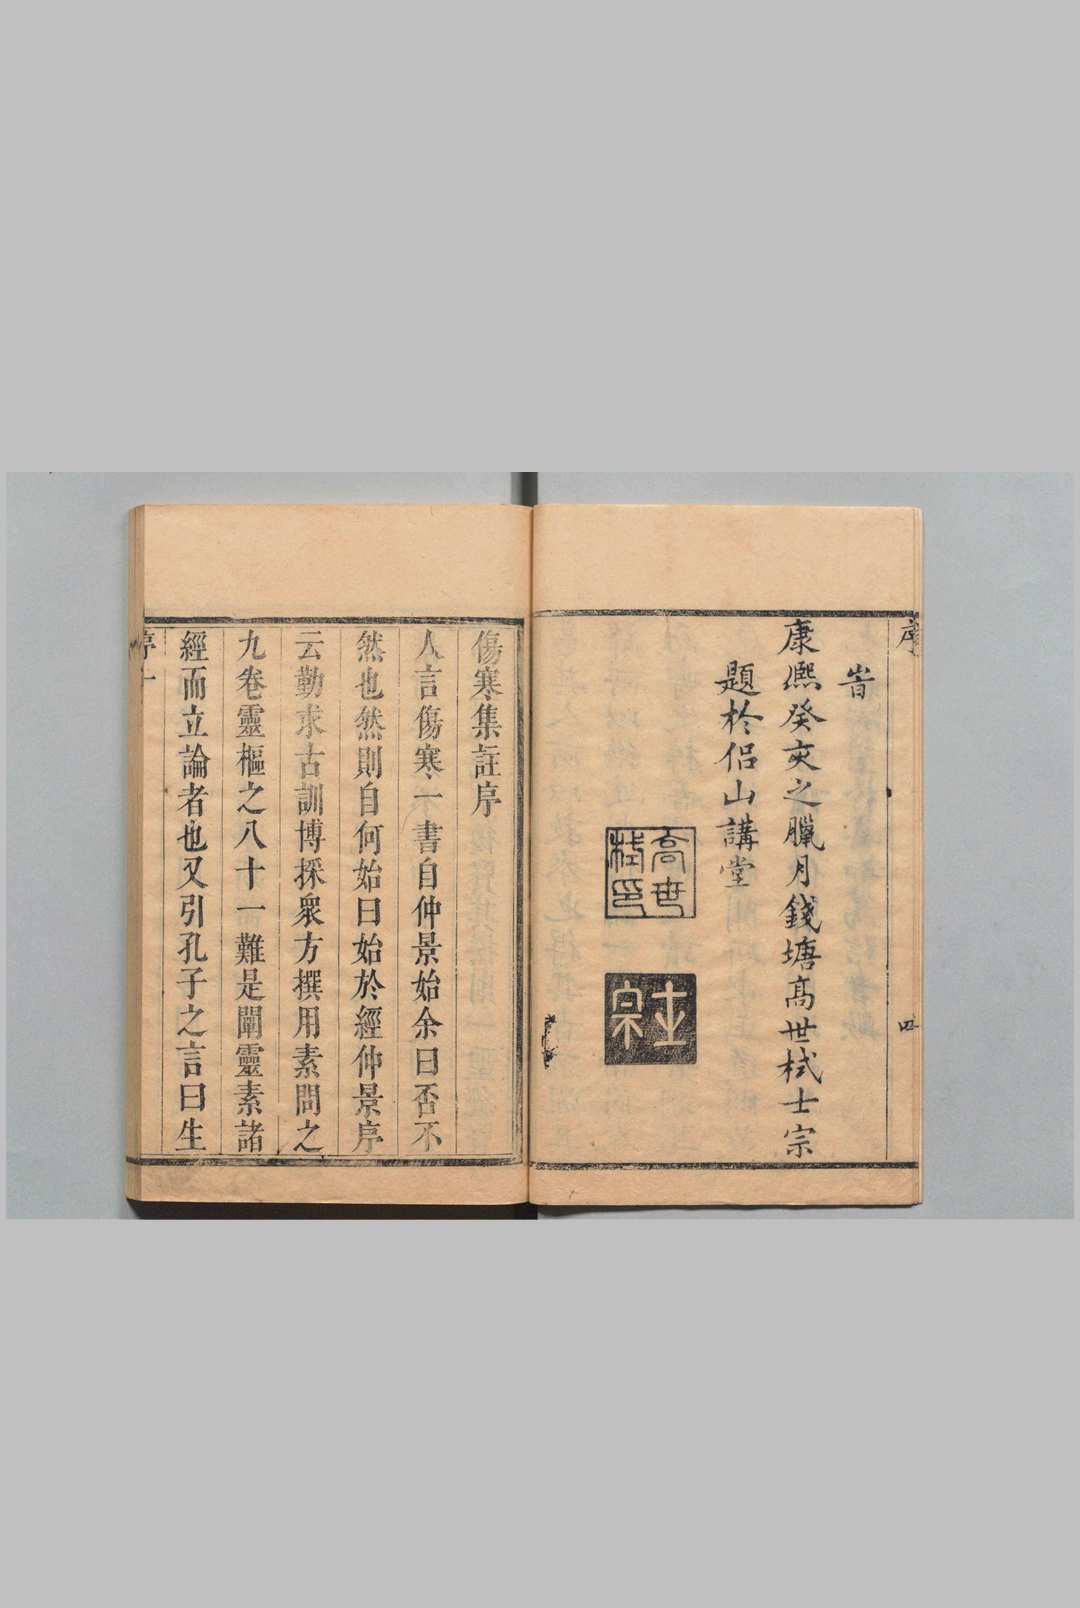 序
旹
康熈癸亥之臘月錢塘高世栻士宗
題於侣山講堂
高世
栻印
士
宗
四
傷寒集註序
人言傷寒一書自仲景始余曰否不
然也然則自何始曰始於經仲景序
云勤求古訓博採衆方撰用素問之
九卷靈樞之八十一難是闡靈素諸
經而立論者也又引孔子之言曰生
序